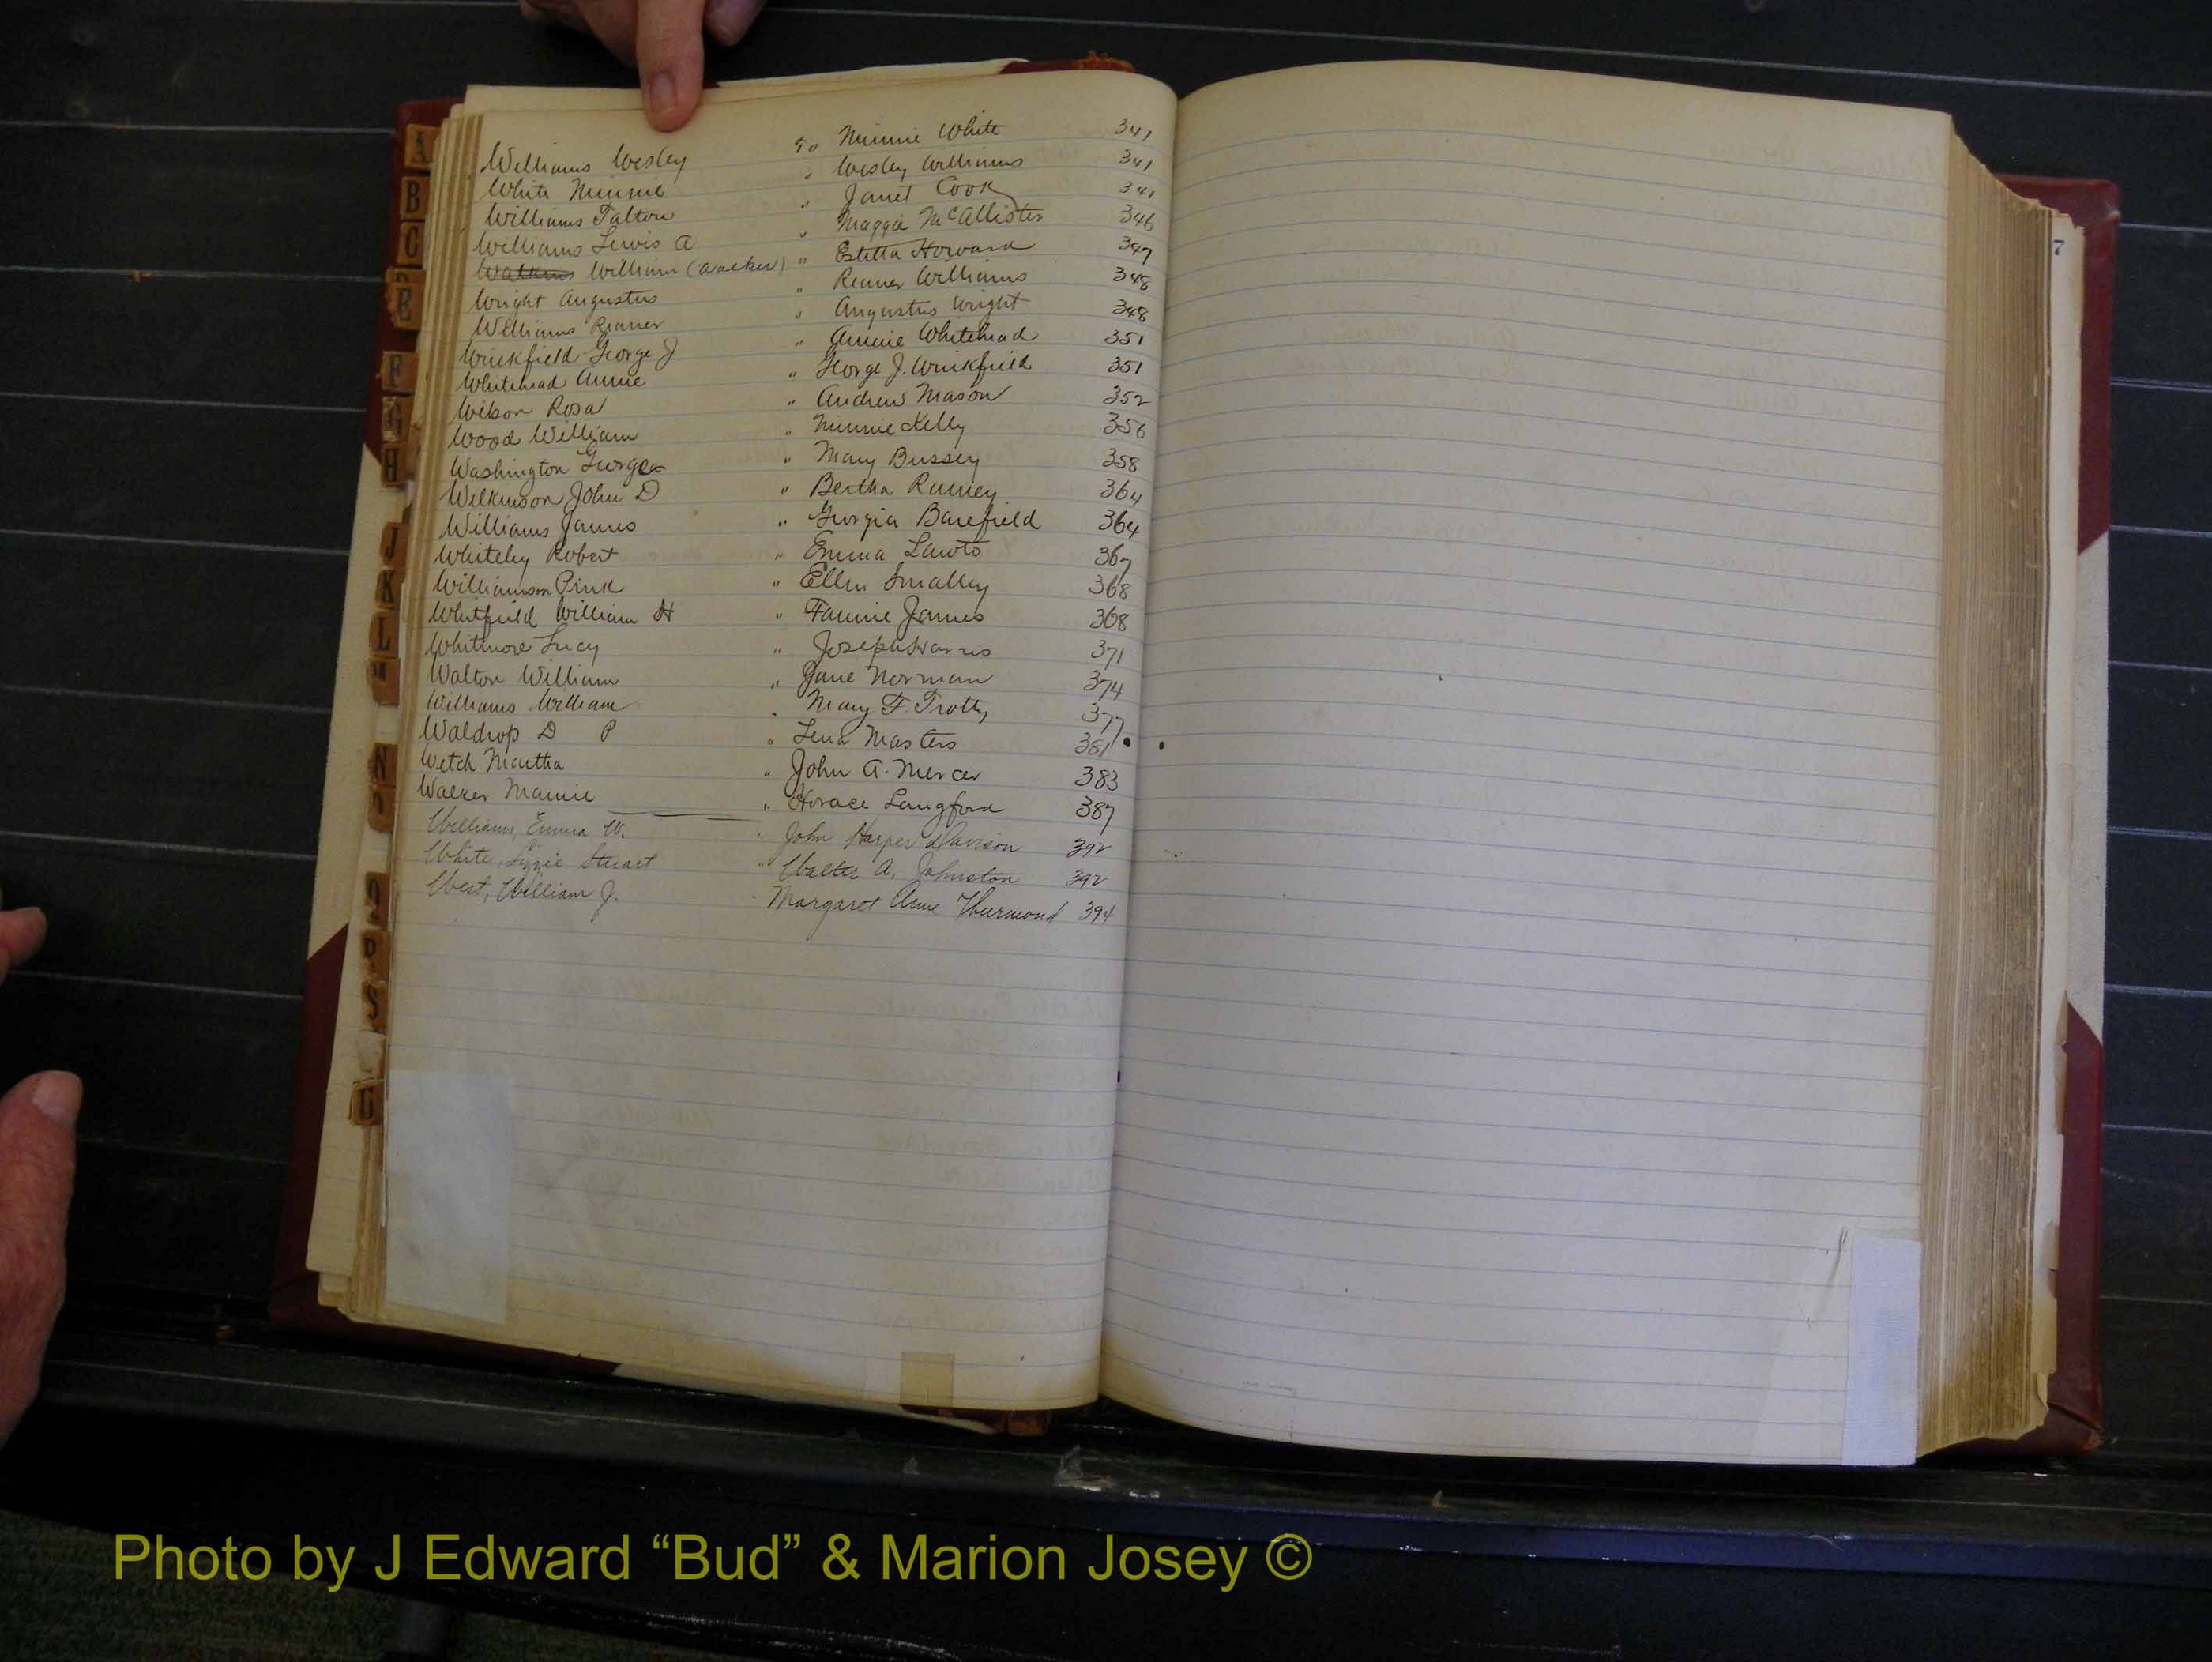 Williams Wesley To Minnie White 341
White Minnie " Wesley Williams 341
Williams Talton " Janet Cook 341
Williams Lewis A " Maggie McAllister 346
William (Walker) " Estella Howard 347
Wright Augustus " Reaner Williams 348
Williams Reaner " Augustus Wright 348
Winkfield George J " Annie Whitehead 351
Whitehead Annie " George J. Winkfield 351
Wilson Rosa " Andrew Mason 352
Wood William " Minnie Kelly 356
Washington George " Mary Bussey 358
Wilkinson John D " Bertha Ramey 364
Williams James " Georgia Barefield 364
Whiteley Robert " Emma 367
Williamson Pink " Ellen Smalley 368
Whitfield William H " Fannie James 368
Whitmore Lucy " Joseph Harris 371
Walton William " Jane Norman 374
Williams William " Mary F. Trotty 377
Waldrop D P " Lena Masters 381
Welch Martha " John A. Mercer 383
Walker Mamie " Horace Langford 387
Williams, Emma W. " John Harper Davison 392
White, Lizzie Stuart " Walter A. Johnston 392
West, William J. Margaret Anne Thurmond 394
A
B
C
E
F
G
H
J
K
L
M
N
O
Q
R
S
U
7
Photo by J Edward “Bud” & Marion Josey ©